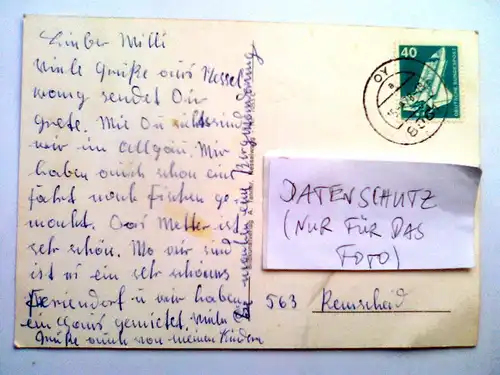 Lieber Willi
viele Grüße aus Nessel
wang sendet Dir
Grete. Wie Du siehst sind
wir im Allgäu. Wir
haben auch schon eine
fahrt nach Füssen ge-
macht. Das Wetter ist
sehr schön. Wo wir sind
ist es ein sehr schönes
Feriendorf u wir haben
ein Haus gemietet. Viele
Grüße auch von meinen Kindern
40
DEUTSCHE BUNDESPOST
OY
DATENSCHUTZ
(NUR FÜR DAS
FOTO)
563 Remscheid